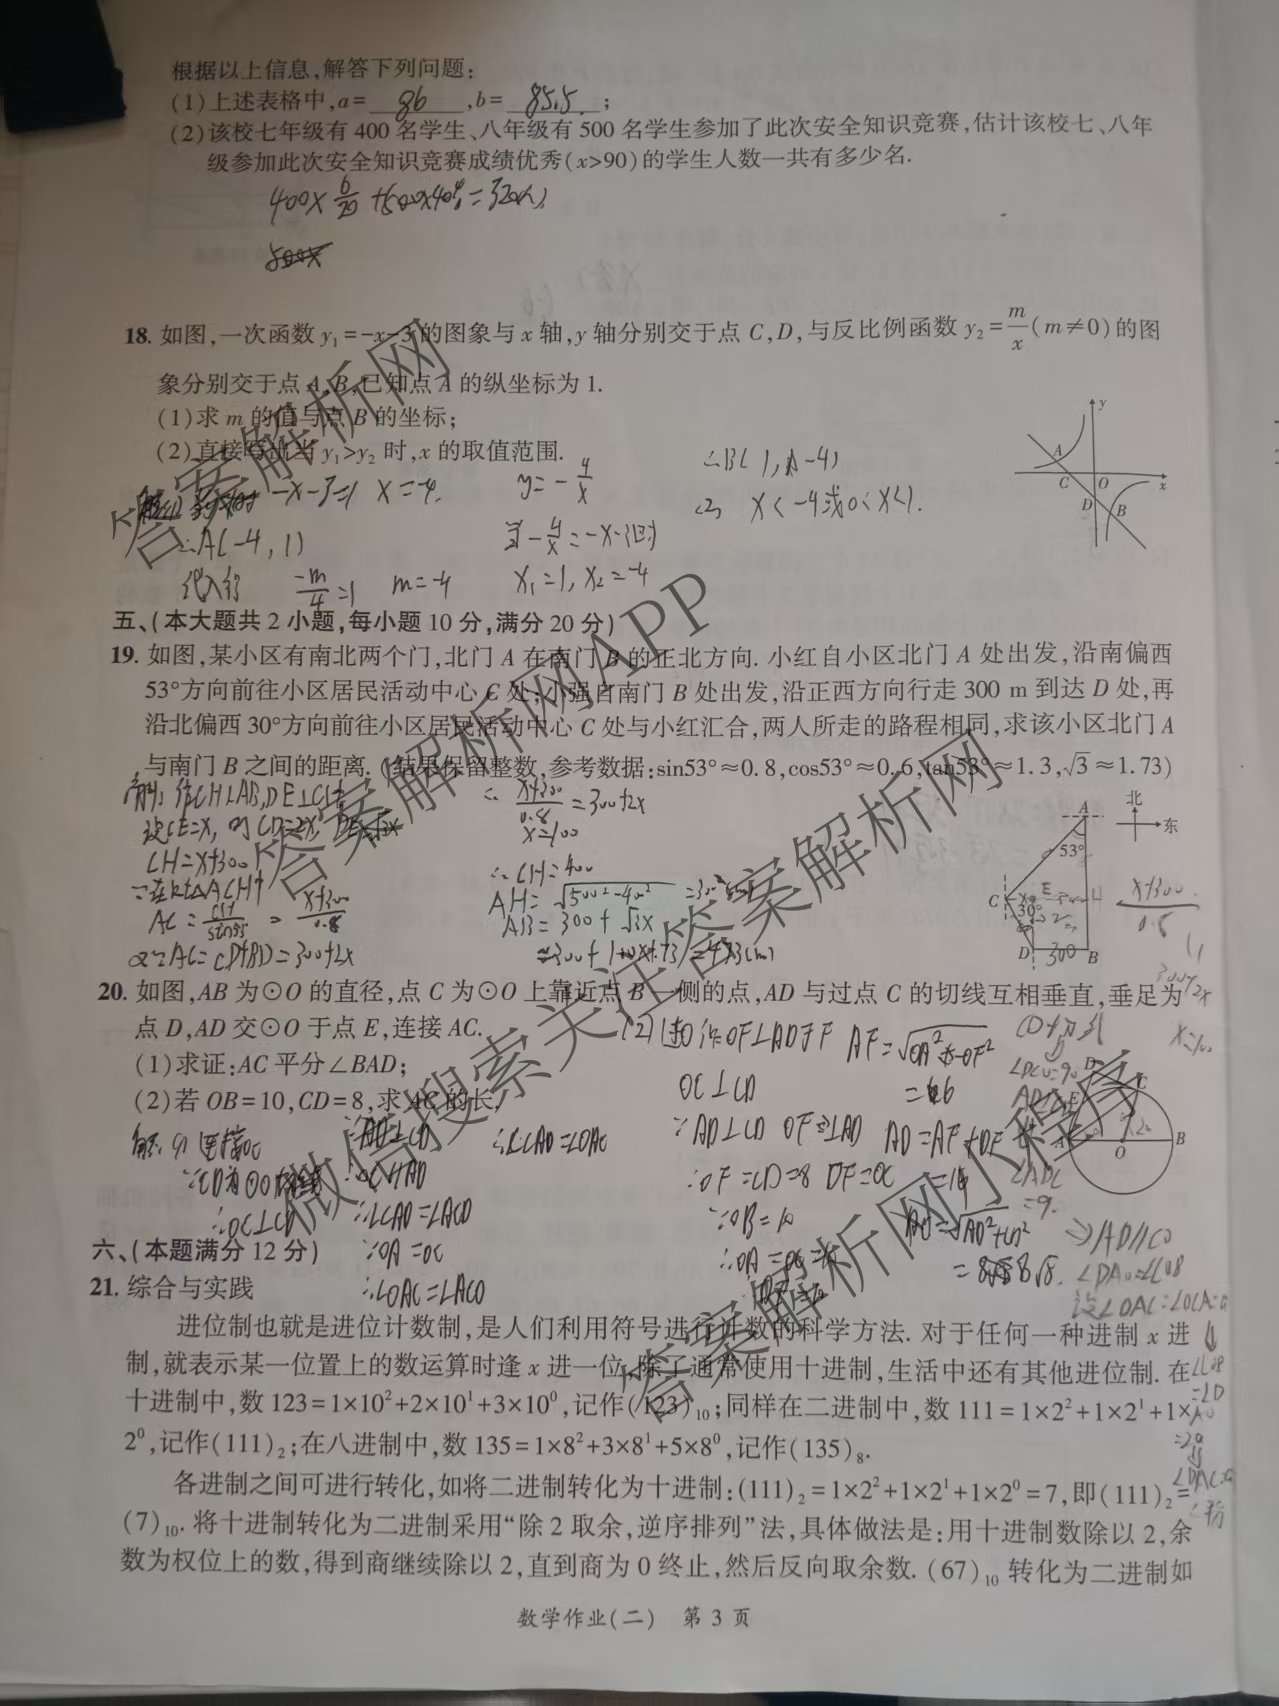 根据以上信息,解答下列问题:
(1)上述表格中,a= 86 ,b= 85.5 ;
(2)该校七年级有400名学生、八年级有500名学生参加了此次安全知识竞赛,估计该校七、八年
级参加此次安全知识竞赛成绩优秀(x>90)的学生人数一共有多少名.
400× 6/20 +500×40% =320(人)
500×
18. 如图,一次函数y₁=-x-3的图象与x轴,y轴分别交于点C,D,与反比例函数y₂=m/x(m≠0)的图
象分别交于点A,B,已知点A的纵坐标为1.
(1)求m的值与点B的坐标;
(2)直接写出当y₁>y₂时,x的取值范围.
-x-3=1 x=-4.
∴A(-4,1)
代入得 -m/4=1 m=-4
y=-4/x
-4/x=-x-3
x₁=1, x₂=-4
∴B(1,-4)
(2) x<-4或0<x<1.
y
A
C O x
D B
五、(本大题共2小题,每小题10分,满分20分)
19. 如图,某小区有南北两个门,北门A在南门B的正北方向.小红自小区北门A处出发,沿南偏西
53°方向前往小区居民活动中心C处;小强自南门B处出发,沿正西方向行走300 m到达D处,再
沿北偏西30°方向前往小区居民活动中心C处与小红汇合,两人所走的路程相同,求该小区北门A
与南门B之间的距离.(结果保留整数,参考数据:sin53°≈0.8,cos53°≈0.6,tan53°≈1.3,√3≈1.73)
解:作CH⊥AB,DE⊥CH
设CE=x, 则CD=2x, DE=√3x
CH=x+300
∵在Rt△ACH中
AC=CH/sin53=x+300/0.8
又∵AC=CD+BD=300+2x
∴ x+300/0.8 =300+2x
x=100
∴CH=400
AH=√500²-400²=300
AB=300+√3x
≈300+100×1.73=473(m)
北
东
A
53°
C x E H
30°
D 300 B
x+300
0.8
300+2x
x=100
20. 如图,AB为⊙O的直径,点C为⊙O上靠近点B一侧的点,AD与过点C的切线互相垂直,垂足为
点D,AD交⊙O于点E,连接AC.
(1)求证:AC平分∠BAD;
(2)若OB=10,CD=8,求AC的长.
解:(1)连接OC
∵CD为⊙O切线
∴OC⊥CD
∵AD⊥CD
∴OC∥AD
∴∠CAD=∠ACO
∵OA=OC
∴∠OAC=∠ACO
∴∠CAD=∠OAC
(2)过O作OF⊥AD于F
OC⊥CD
∵AD⊥CD OF⊥AD
∴OF=CD=8 DF=OC
∵OB=10
AF=√OA²-OF²
=6
AD=AF+DF
=16
AC=√AD²+CD²
=8√5.
D
E C
A O B
∠ADC
=90
⇒AD∥CO
∠DAO=∠COB
设∠OAC=∠OCA=a
六、(本题满分12分)
21. 综合与实践
进位制也就是进位计数制,是人们利用符号进行计数的科学方法.对于任何一种进制x进
制,就表示某一位置上的数运算时逢x进一位.除了通常使用十进制,生活中还有其他进位制.在
十进制中,数123=1×10²+2×10¹+3×10⁰,记作(123)₁₀;同样在二进制中,数111=1×2²+1×2¹+1×
2⁰,记作(111)₂;在八进制中,数135=1×8²+3×8¹+5×8⁰,记作(135)₈.
各进制之间可进行转化,如将二进制转化为十进制:(111)₂=1×2²+1×2¹+1×2⁰=7,即(111)₂=
(7)₁₀.将十进制转化为二进制采用“除2取余,逆序排列”法,具体做法是:用十进制数除以2,余
数为权位上的数,得到商继续除以2,直到商为0终止,然后反向取余数.(67)₁₀转化为二进制如
数学作业(二) 第3页
答案解析网
答案解析网APP
微信搜索关注答案解析网
答案解析网小程序